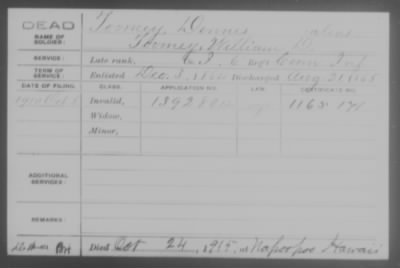 DEAD
NAME OF SOLDIER:
Toomey, Dennis alias
Toomey, William D.
SERVICE:
Late rank, Co. I, 6 Reg't Conn Inf
TERM OF SERVICE:
Enlisted Dec. 3, 186 Discharged Aug 21 1865
DATE OF FILING.
CLASS.
APPLICATION NO.
LAW.
CERTIFICATE NO.
1910 Oct 5
Invalid,
1392
1165 171
Widow,
Minor,
ADDITIONAL SERVICES:
REMARKS:
Died Oct 24, 1915, at Napoopoo Hawaii